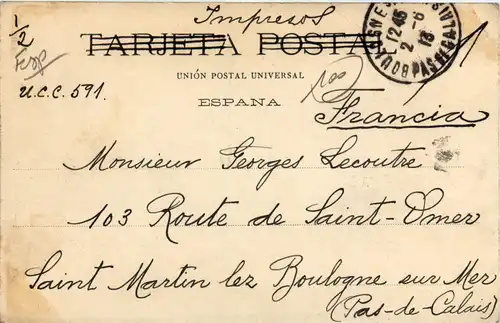 Impresos
1/2
TARJETA POSTAL
UNIÓN POSTAL UNIVERSAL
U.C.C. 591.
ESPAÑA
Francia
Monsieur Georges Lecoutre
103 Route de Saint-Omer
Saint Martin lez Boulogne sur Mer
(Pas-de-Calais)
12 45
2 - 6
13
PAS DE CALAIS